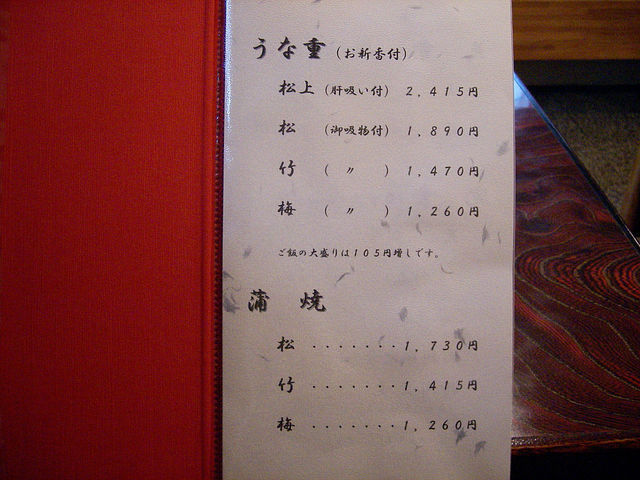 うな重 (お新香付)
松上 (肝吸い付) 2,415円
松 (御吸物付) 1,890円
竹 ( 〃 ) 1,470円
梅 ( 〃 ) 1,260円
ご飯の大盛りは105円増しです。
蒲 焼
松 ・・・・・・・1,730円
竹 ・・・・・・・1,415円
梅 ・・・・・・・1,260円